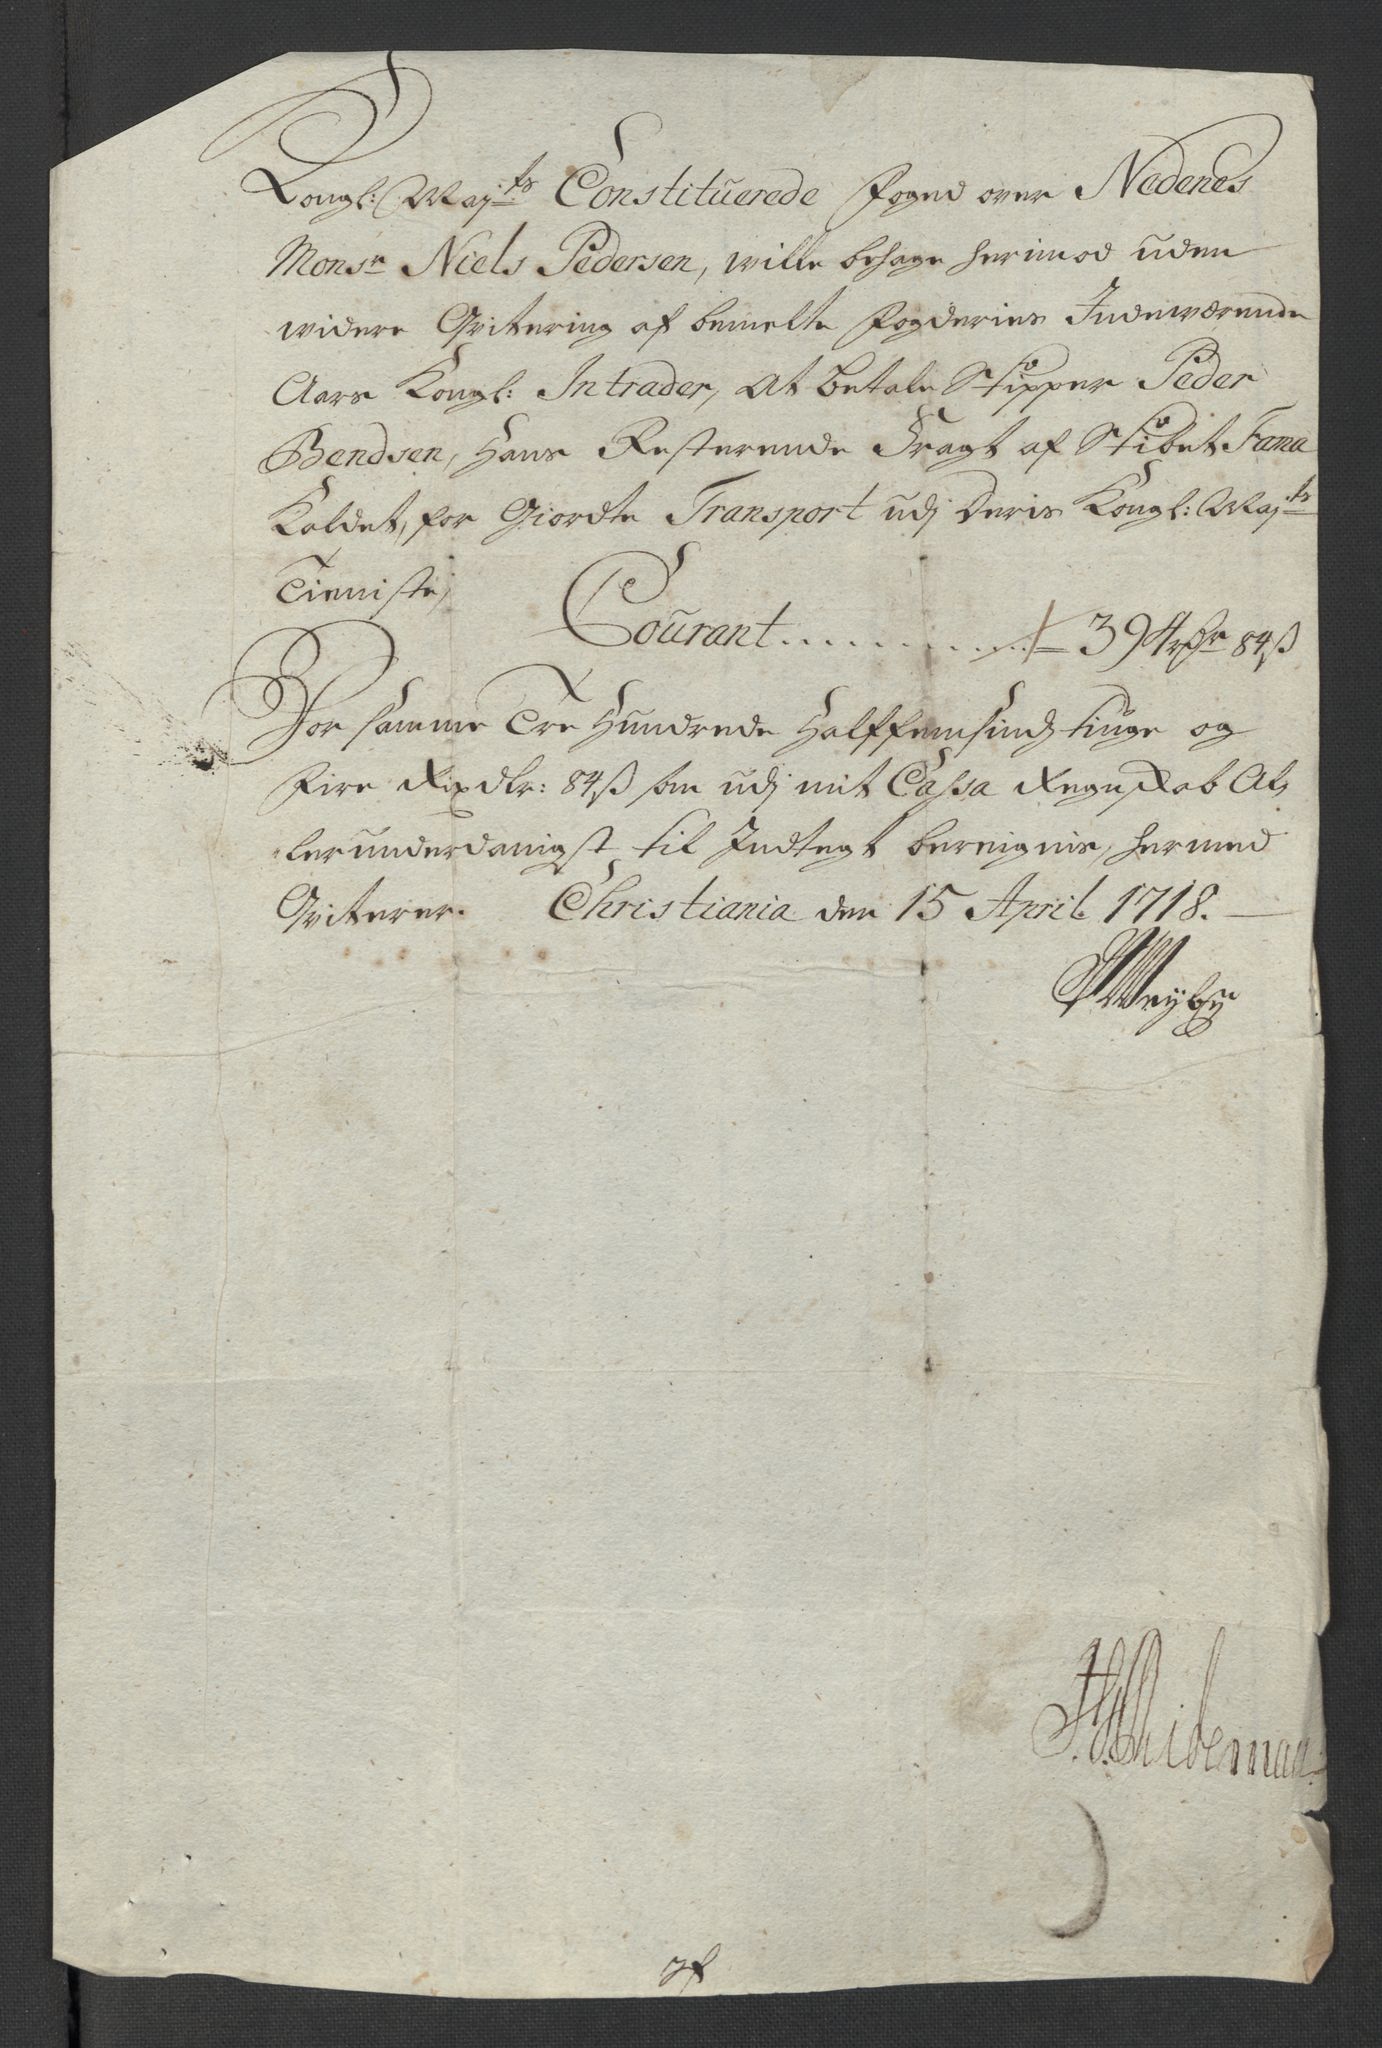 Kongl: May:ts Constituerede foged over Nedenes
Monsr Niels Pedersen, wille behage herimod uden
widere Qvitering af bemelte fogderies Indewærende
Aars Kongl: Intrader, at betale Skipper Peder
Bendsen, hans Resterende Fragt af Skibet Fama
Kaldet, for Giordte Transport udj Deris Kongl: May:ts
Tieniste,
Courant . . . . . . . . . 394 Rdr 84 ß
For samme Tre Hundrede Halffemsinds tiuge og
Fire Rixdlr: 84 ß som udj mit Cassa Regnskab Al,
lerunderdanigst til Indtegt bereignis, hermed
Qviterer. Christiania den 15 April 1718.
Weyby